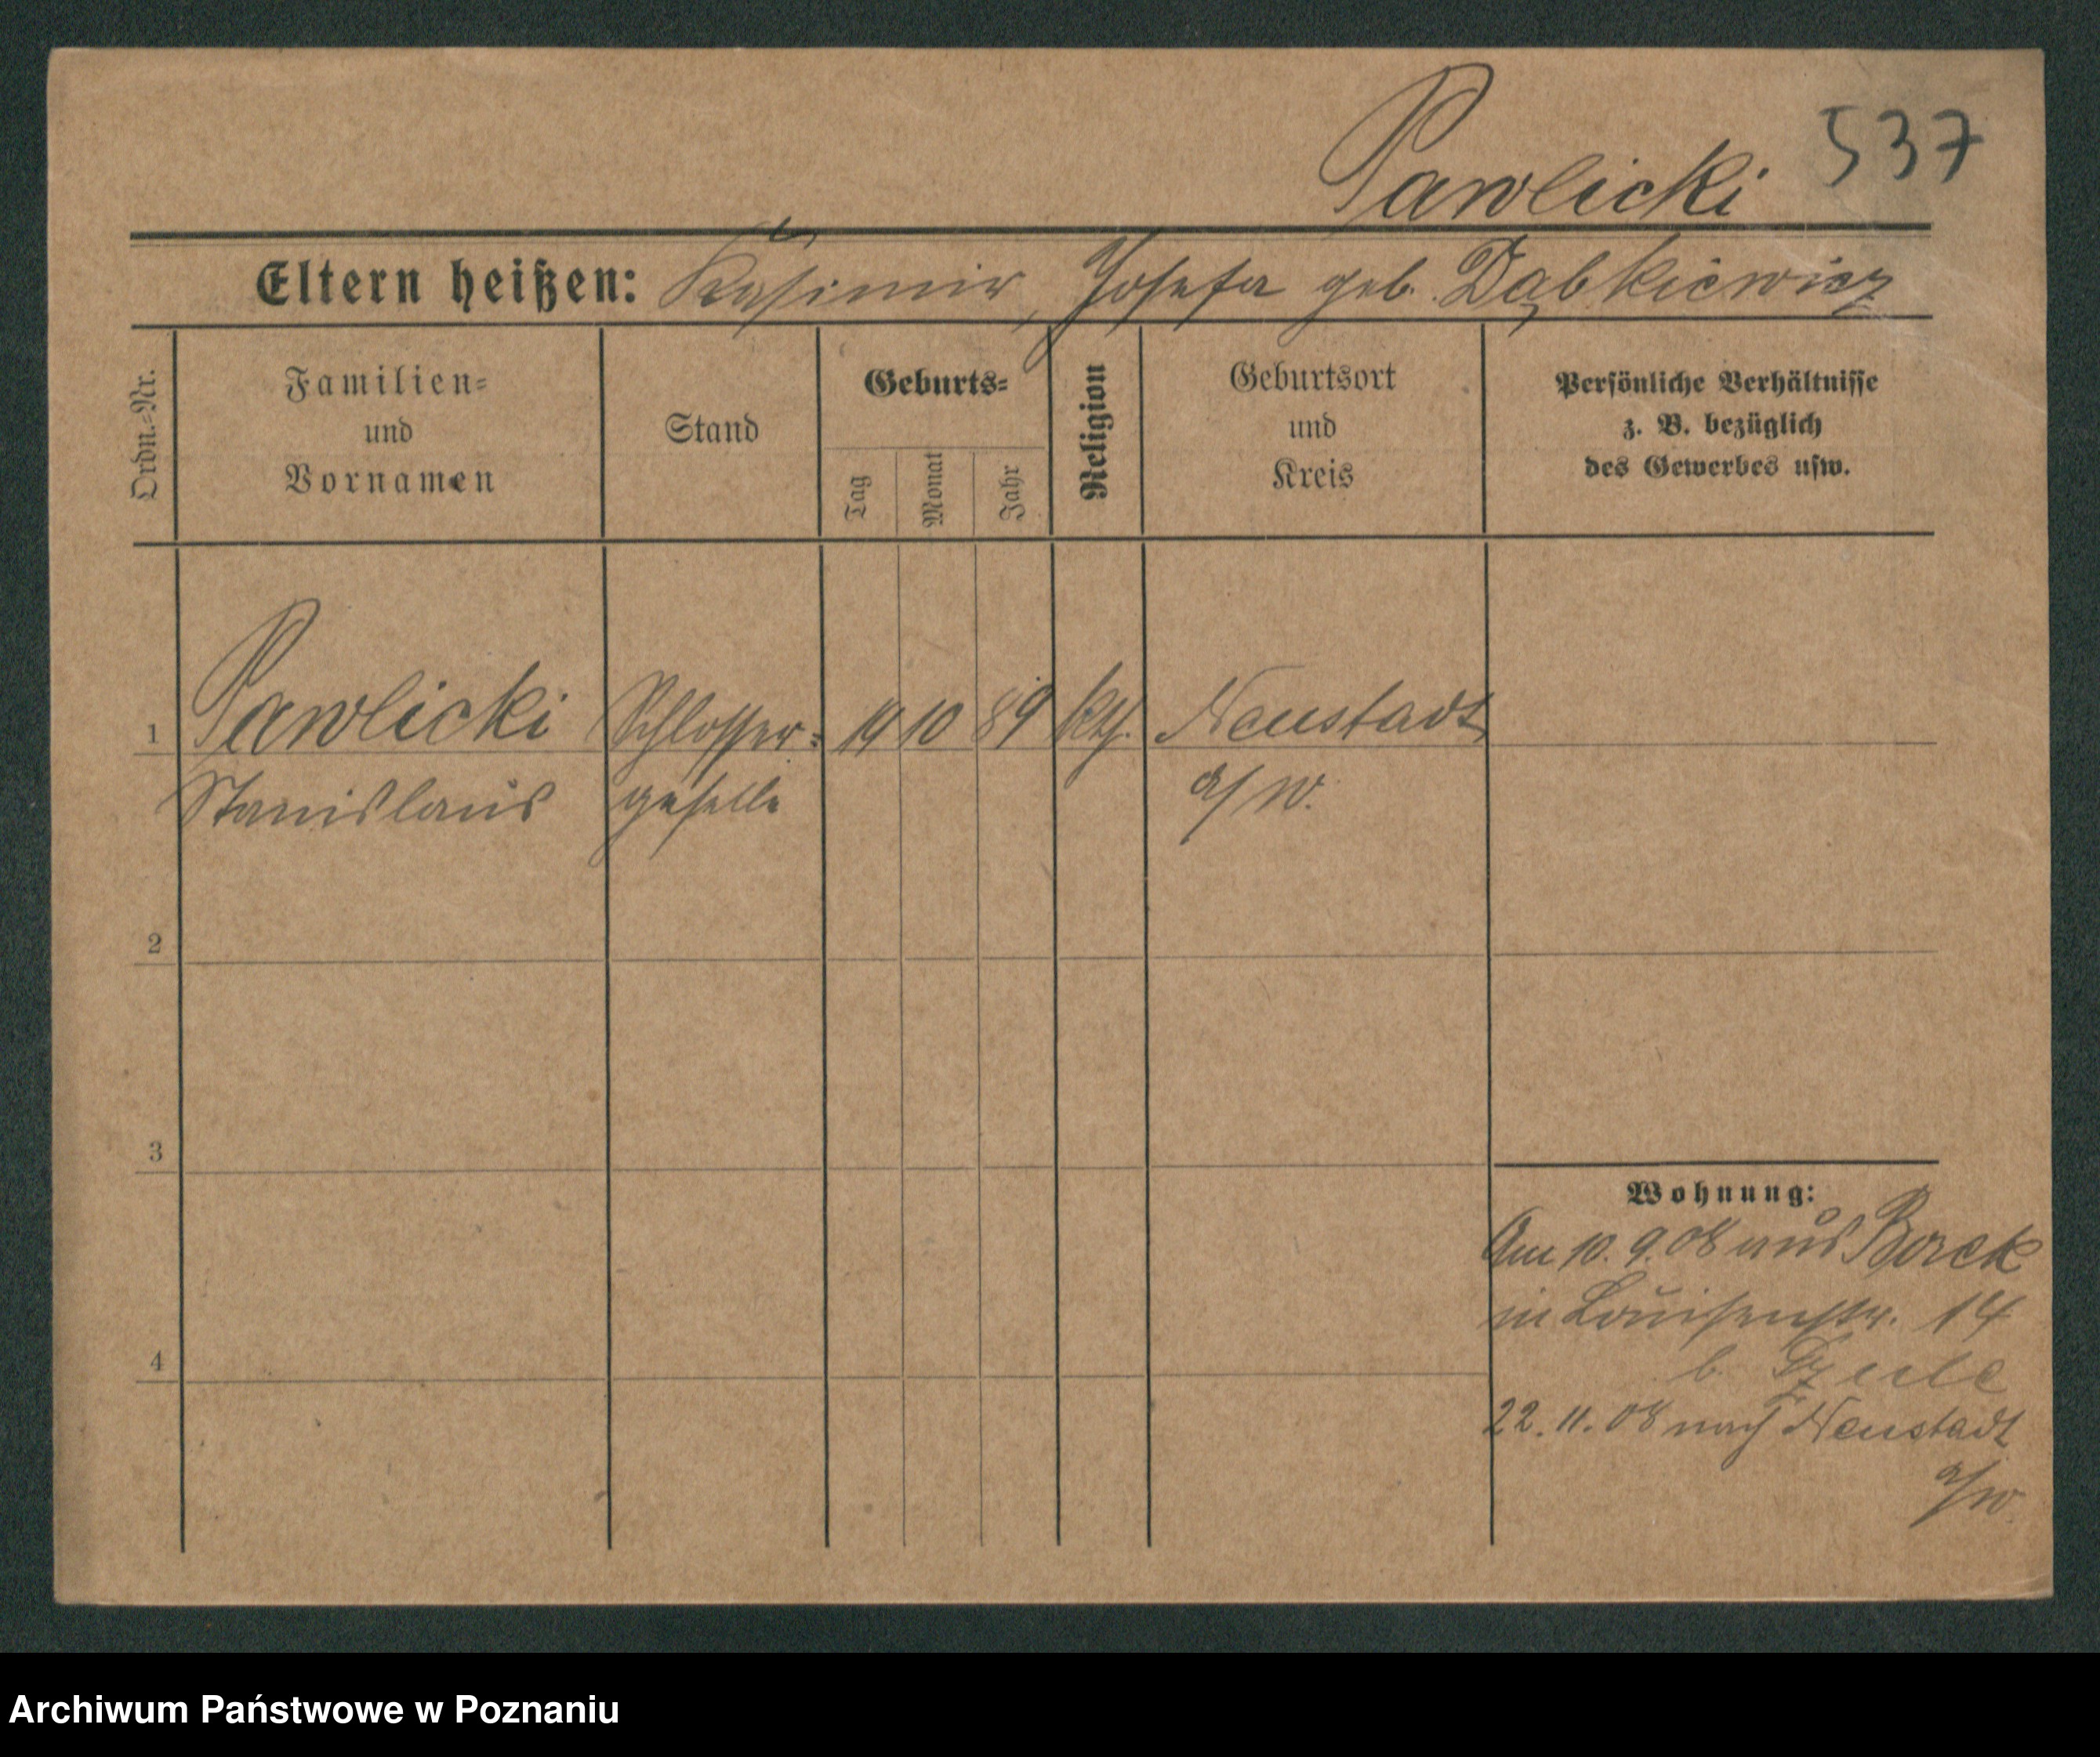 537
Pawlicki
Eltern heißen: Kasimir, Josefa geb. Dąbkiewicz
Ordn.-Nr.
Familien- und Vornamen
Stand
Geburts-
Tag
Monat
Jahr
Religion
Geburtsort und Kreis
Persönliche Verhältnisse
z. B. bezüglich
des Gewerbes usw.
1 Pawlicki Schlosser- 19 10 89 kth. Neustadt
Stanislaus geselle a/W.
2
3
4
Wohnung:
Am 10. 9. 08 aus Borek
in Louisenstr. 14
b.
22. 11. 08 nach Neustadt
a/W.
Archiwum Państwowe w Poznaniu